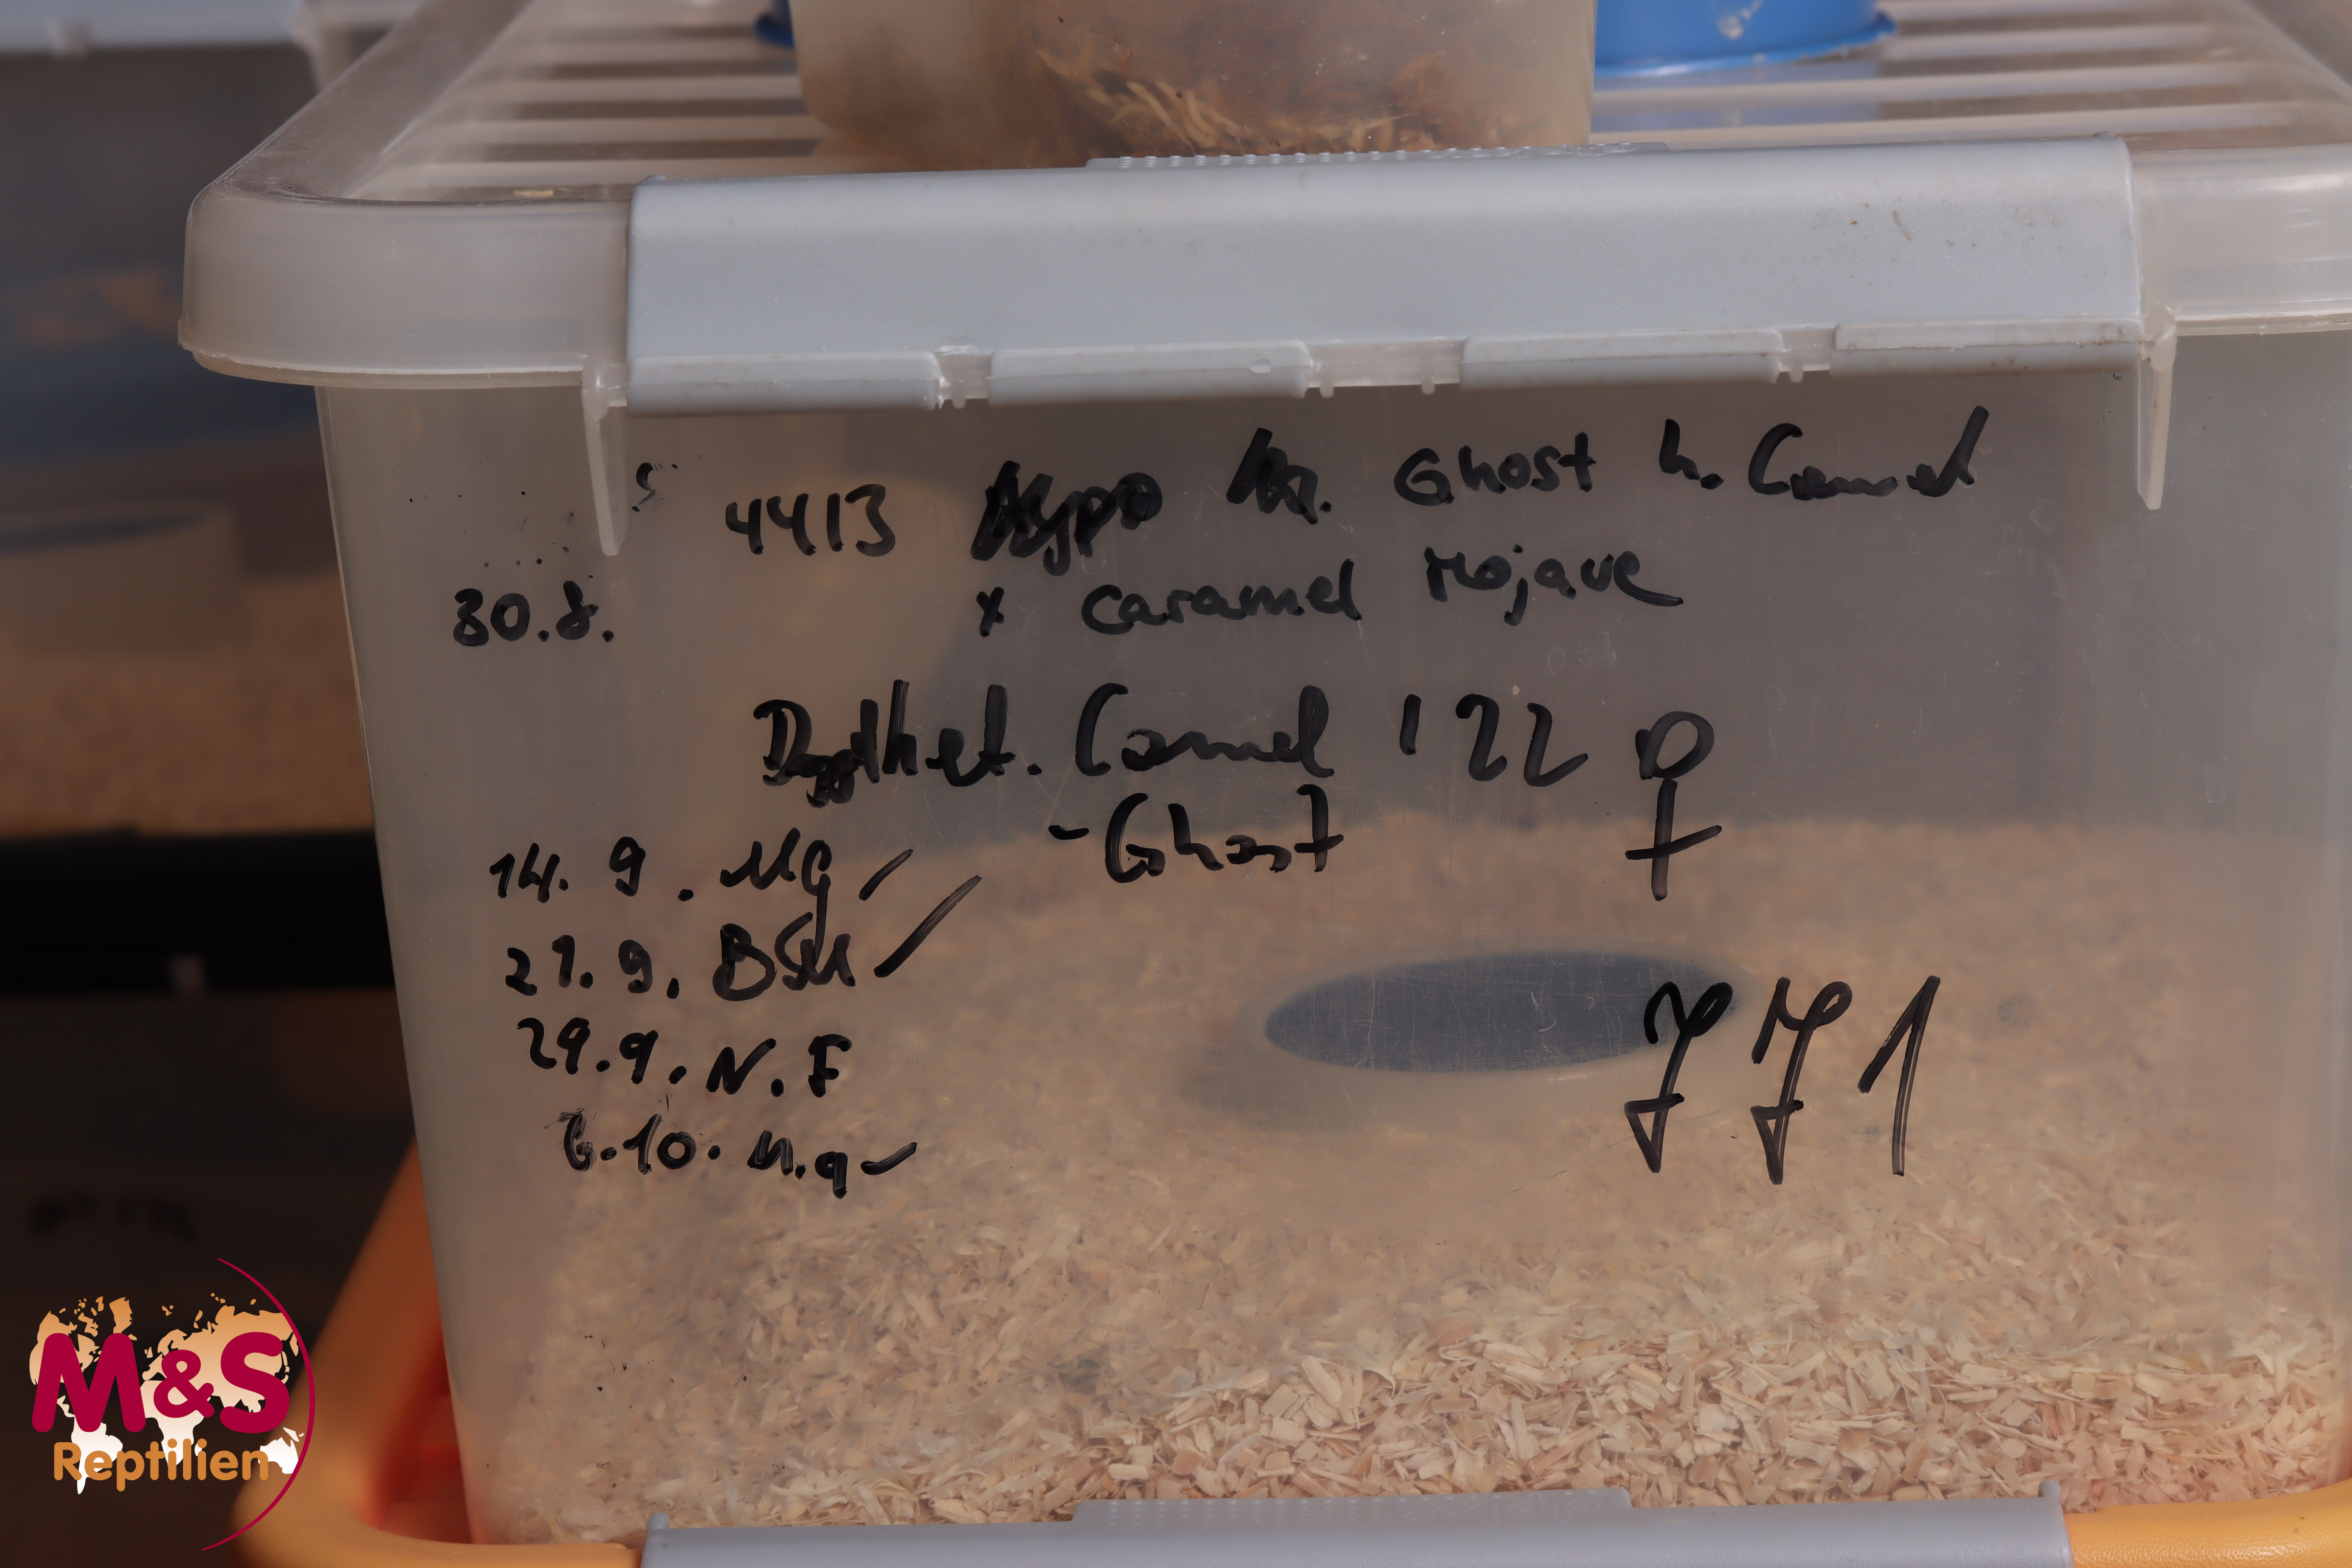 4413 Hypo Ghost h. Caramel
30.8.
x Caramel Mojave
het. Caramel '22 ♀
- Ghost
14. 9. Mg
21. 9. BSM
29.9. N.F
6.10. M.g
771
M&S
Reptilien